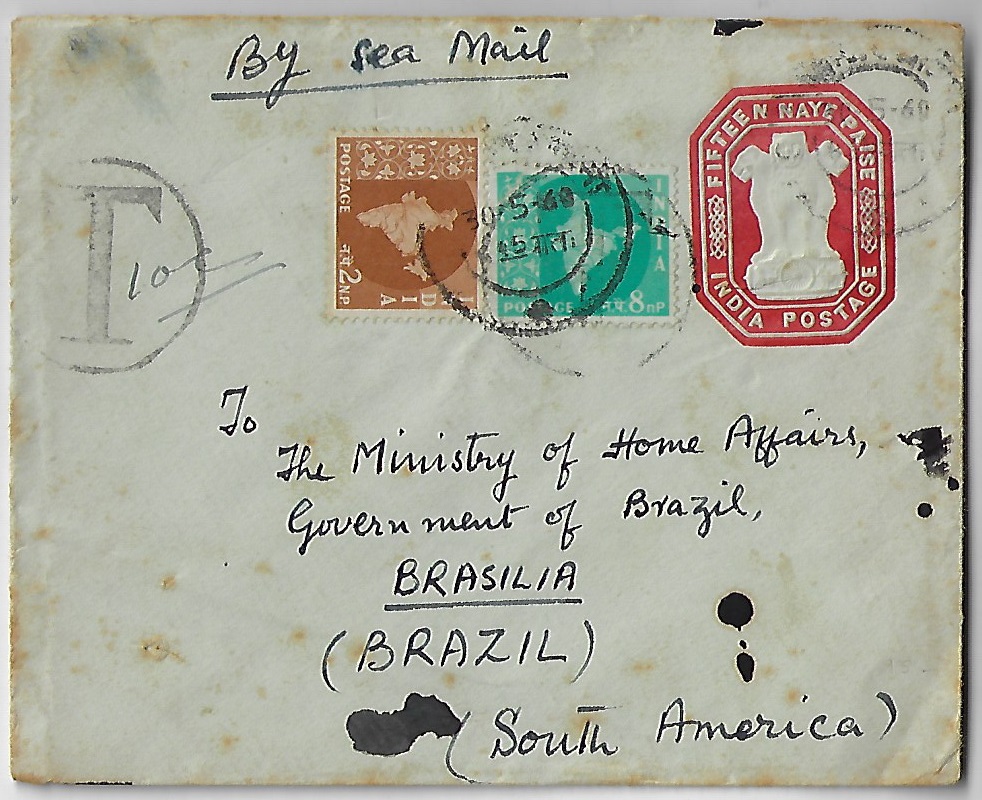 By Sea Mail
FIFTEEN NAYE PAISE
INDIA POSTAGE
POSTAGE
न.पै. 2 NP
INDIA
INDIA
POSTAGE
न.पै. 8 nP
30-5-60
5-60
T
10
To
The Ministry of Home Affairs,
Government of Brazil,
BRASILIA
(BRAZIL)
(South America)